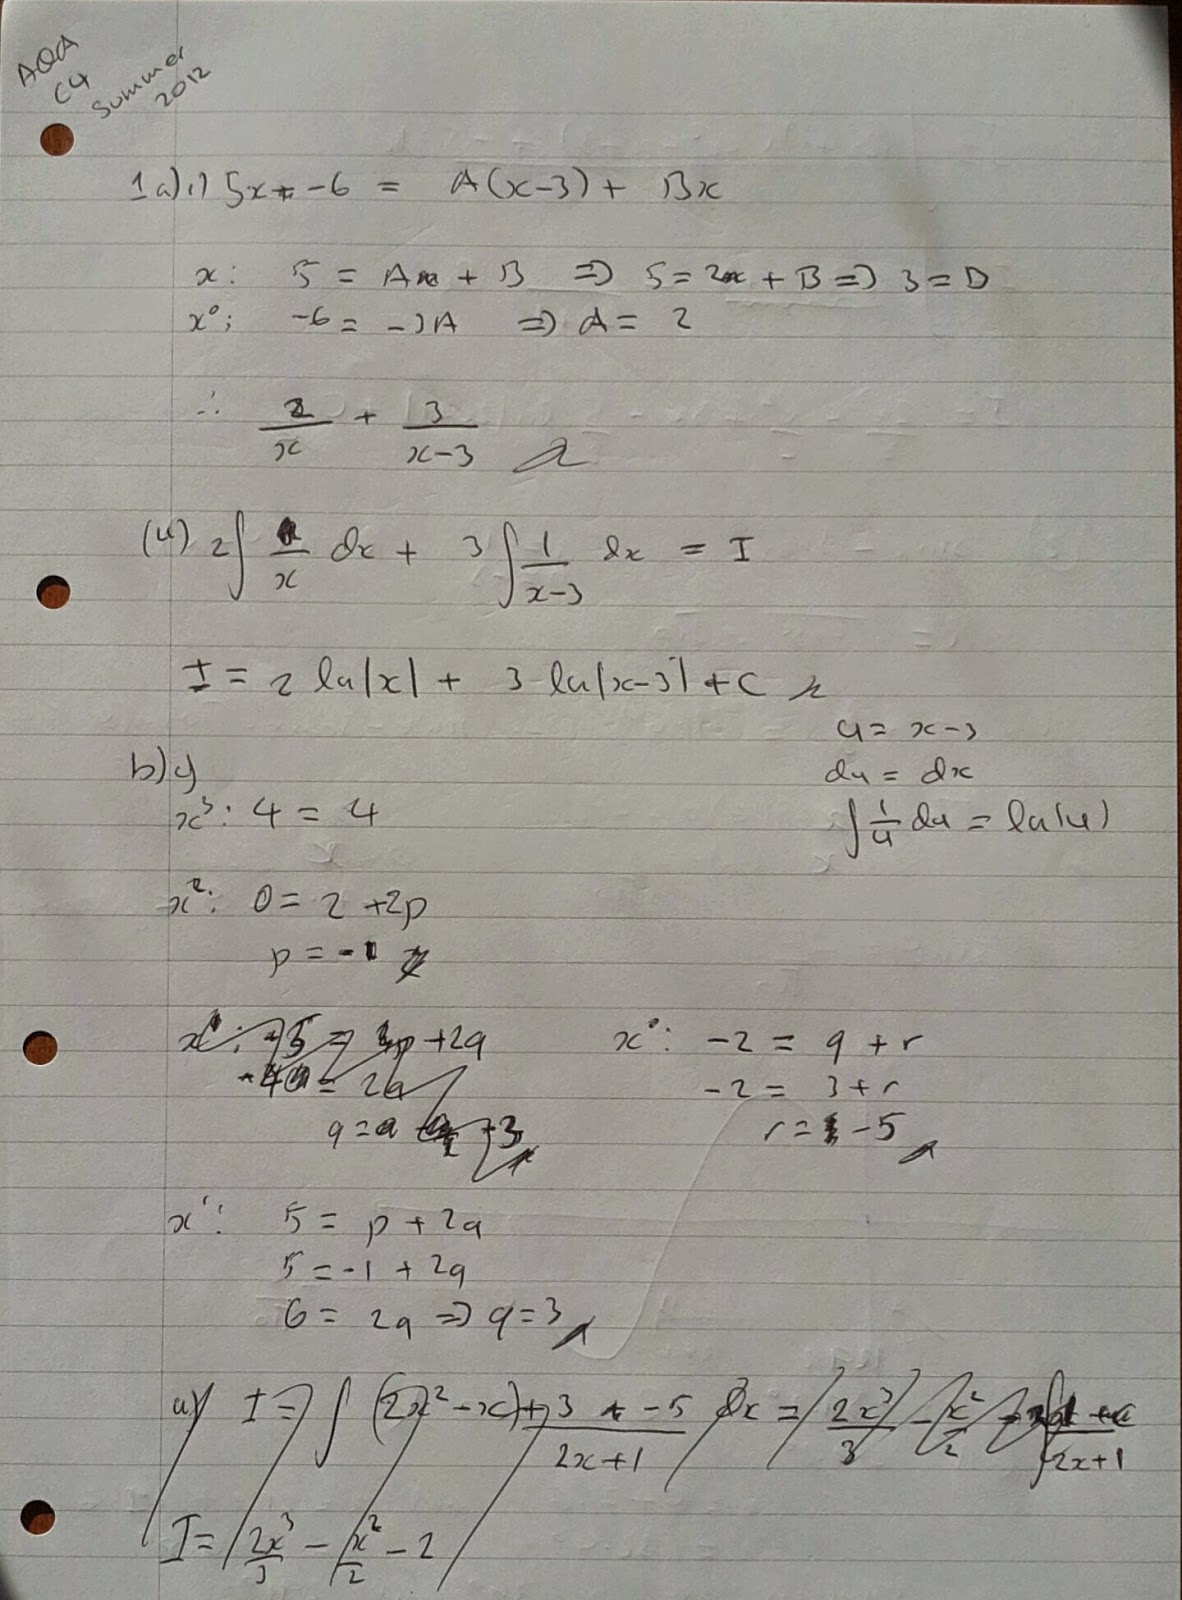 AQA
C4
Summer
2012
1a)i) 5x - 6 = A(x-3) + Bx
x: 5 = A + B ⇒ 5 = 2 + B ⇒ 3 = B
x⁰: -6 = -3A ⇒ A = 2
∴ 2/x + 3/(x-3)
(ii) 2∫ 1/x dx + 3∫ 1/(x-3) dx = I
I = 2 ln|x| + 3 ln|x-3| + C
u = x-3
du = dx
∫ 1/u du = ln(u)
b)i)
x³: 4 = 4
x²: 0 = 2 + 2p
p = -1
x⁰: -2 = q + r
-2 = 3 + r
r = -5
x¹: 5 = p + 2q
5 = -1 + 2q
6 = 2q ⇒ q = 3
ii) I = ∫ (2x² - x) + 3 - 5/(2x+1) dx = 2x³/3 - x²/2
I = 2x³/3 - x²/2 - 2